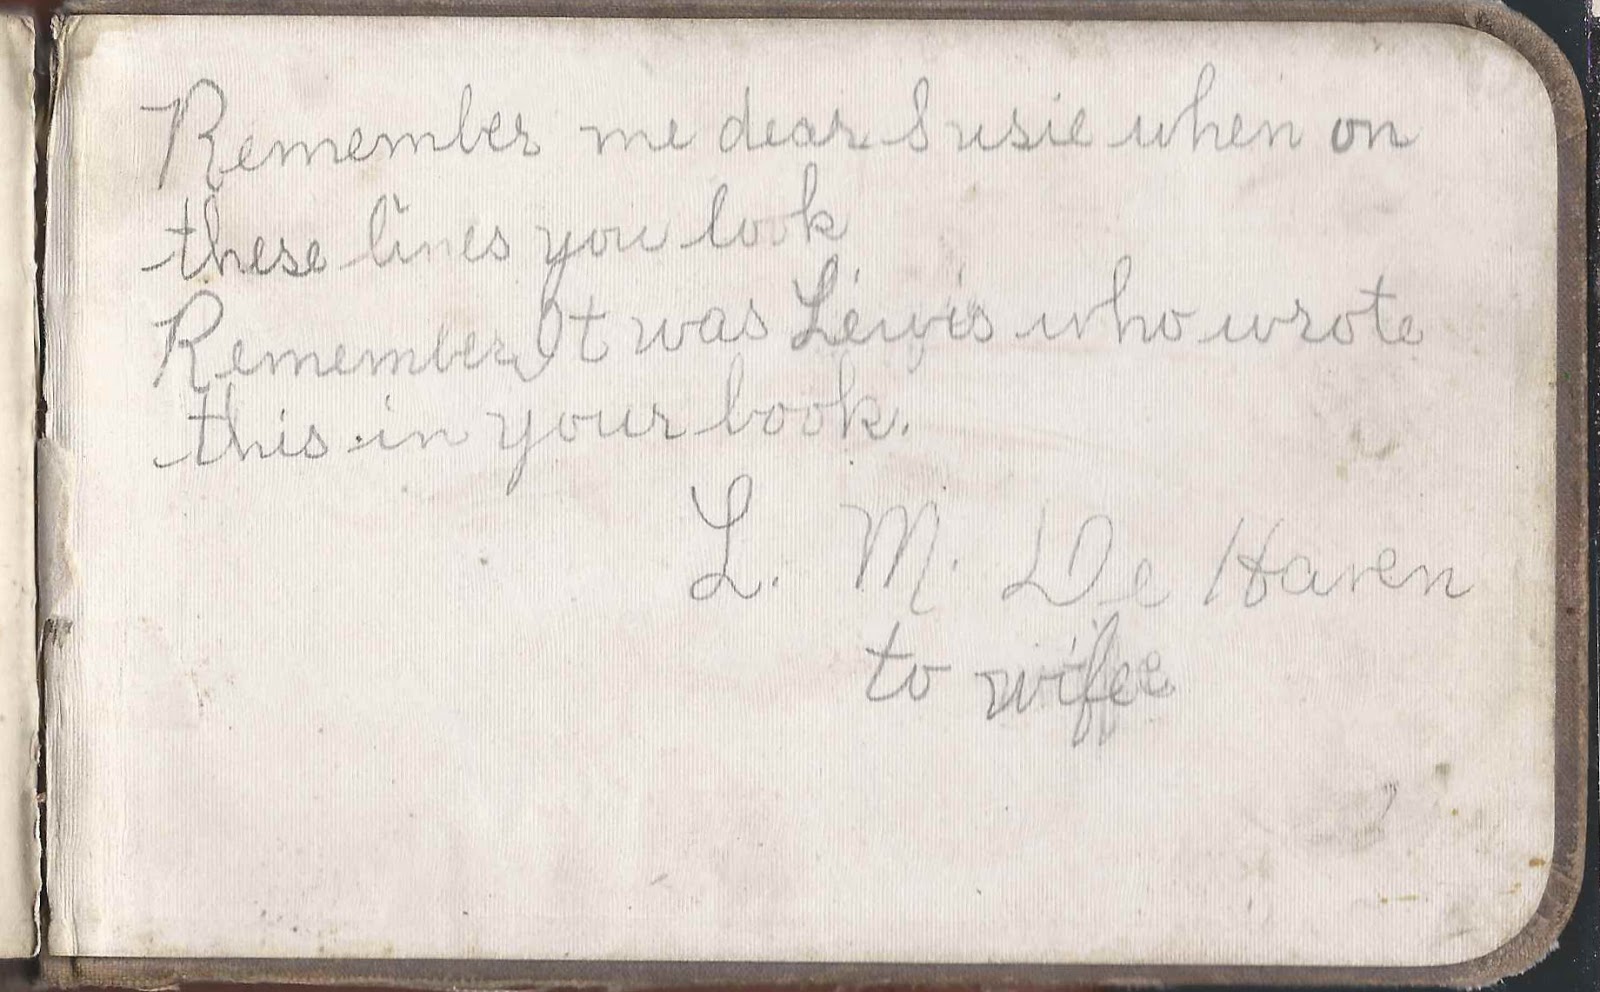 Remember me dear Susie when on
these lines you look
Remember It was Lewis who wrote
this in your book.
L. M. De Haven
to wifee